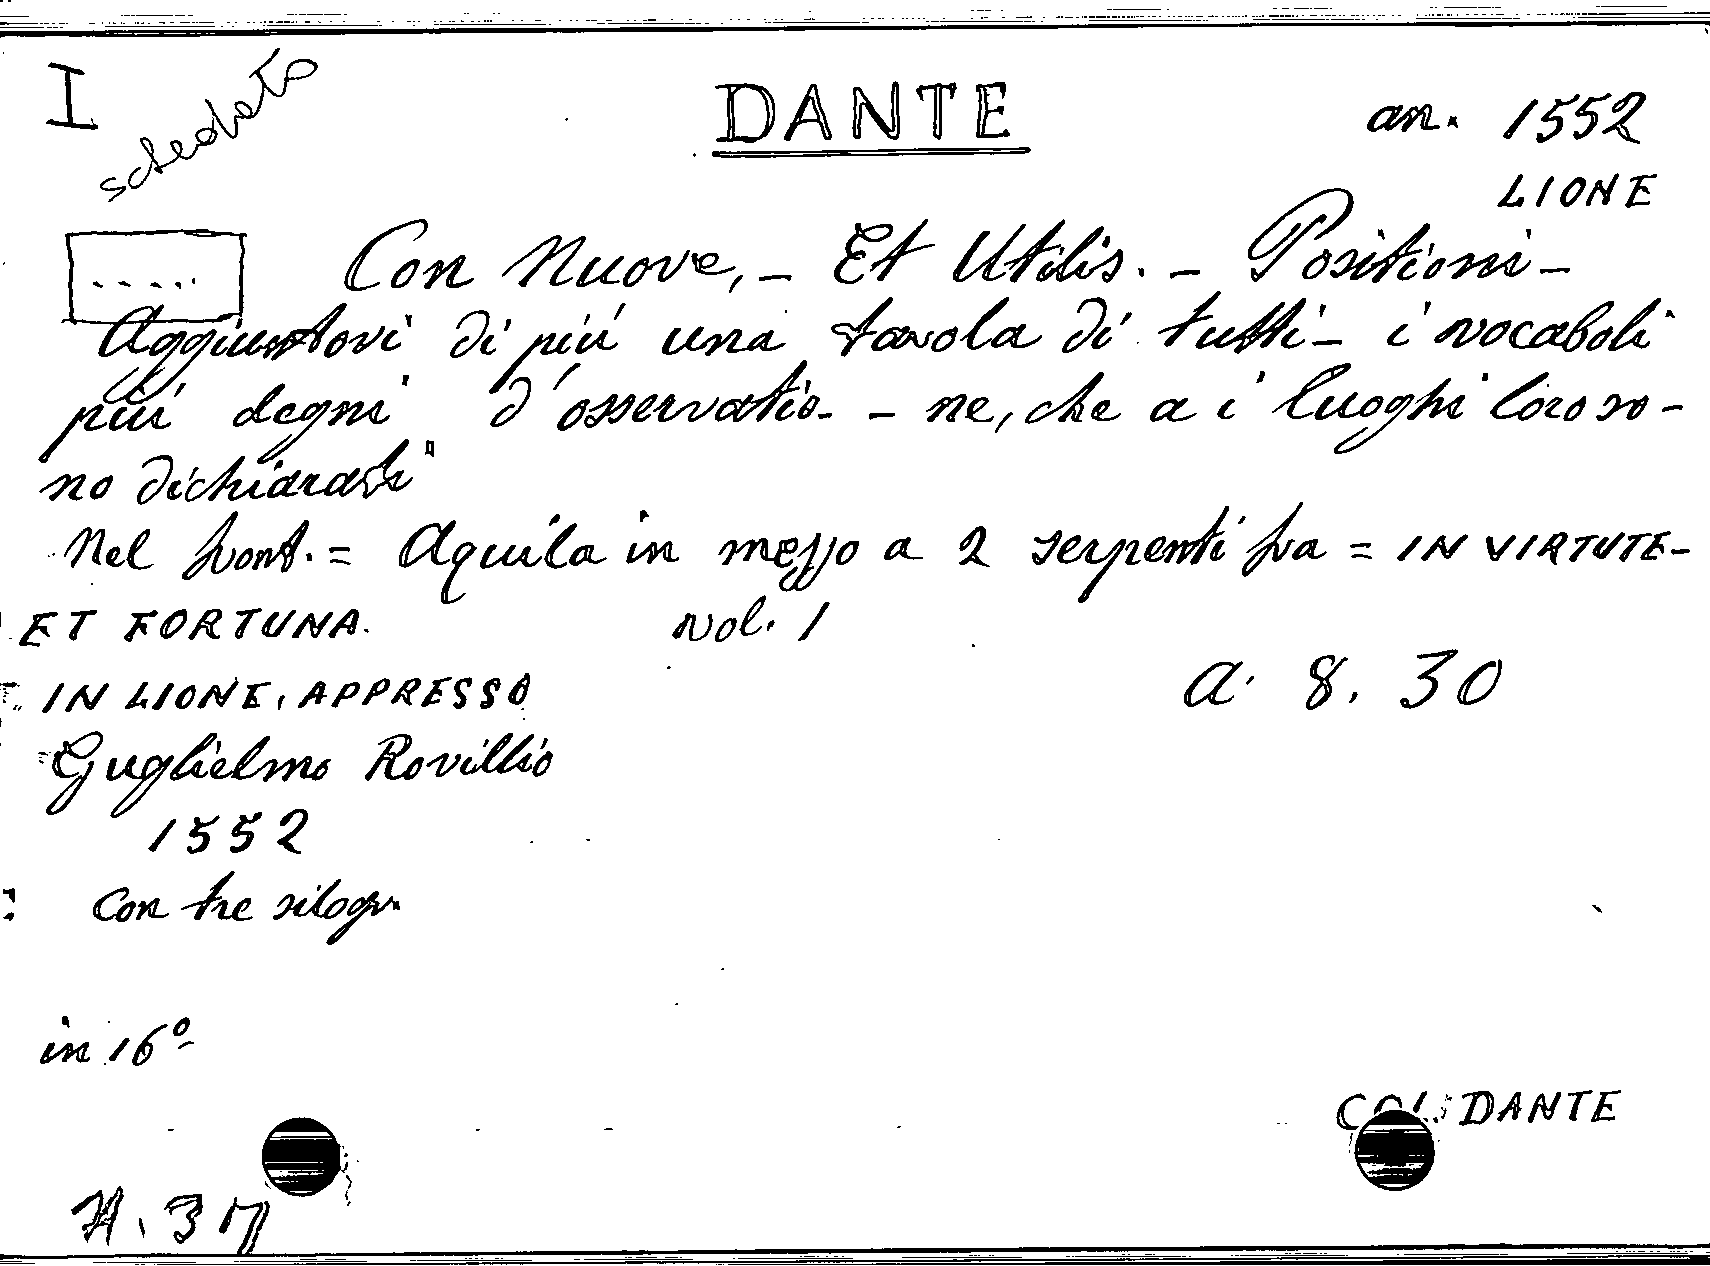 I schedato DANTE an. 1552
LIONE
..... Con Nuove, - Et Utilis. - Positioni -
Aggiuntovi di più una tavola di tutti - i vocaboli
più degni d'osservatio- - ne, che a i luoghi loro so-
no dichiarati
Nel front. = Aquila in mezzo a 2 serpenti fra = IN VIRTUTE-
ET FORTUNA. vol. 1
IN LIONE, APPRESSO a. 8. 30
Guglielmo Rovillio
1552
Con tre silogr.
in 16º
COLL. DANTE